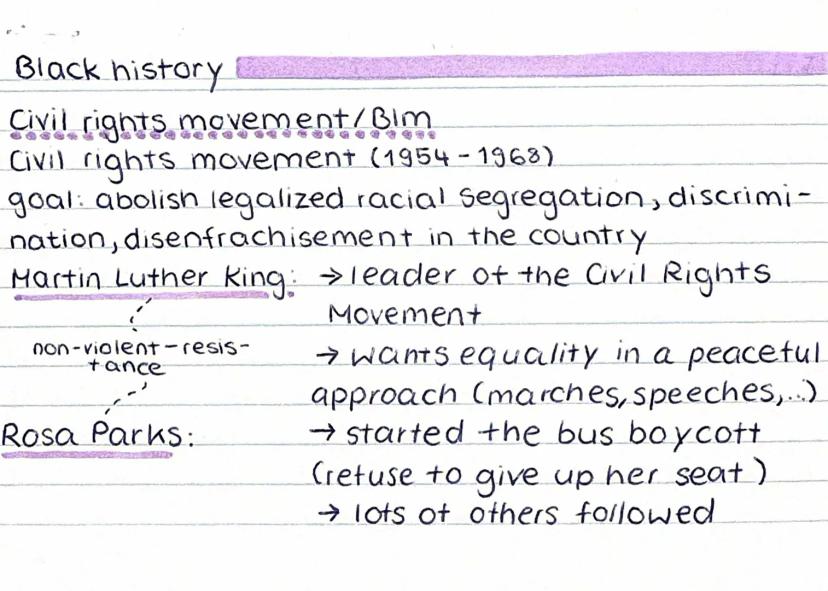 Black history
Civil rights movement/Blm
Civil rights movement (1954-1968)
goal: abolish legalized racial segregation, discrimi-
nation, disenfrachisement in the country
Martin Luther King: → leader of the Civil Rights
Movement
non-violent-resis-
tance
→ wants equality in a peaceful
approach (marches, speeches,..)
Rosa Parks: → started the bus boycott
(refuse to give up her seat)
→ lots of others followed